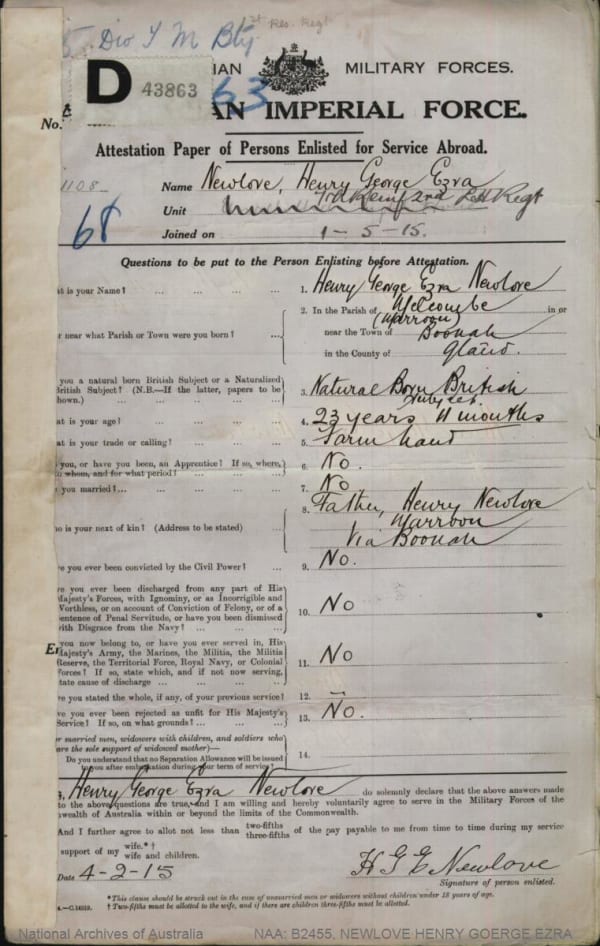 Div T M Bty 1st Res. Regt
D 43863 63
IAN MILITARY FORCES.
AN IMPERIAL FORCE.
No.
Attestation Paper of Persons Enlisted for Service Abroad.
1108
Name Newlove, Henry George Ezra
Unit 7th Reinf 2nd LH Regt
68
Joined on 1-5-15.
Questions to be put to the Person Enlisting before Attestation.
at is your Name? ... ... ... ... 1. Henry George Ezra Newlove
2. In the Parish of Melcombe in or
(Marroon)
r near what Parish or Town were you born? ... near the Town of Boonah
in the County of Qland.
you a natural born British Subject or a Naturalized
British Subject? (N.B.—If the latter, papers to be
hown.) ... ... ... ... 3. Natural Born British
at is your age? ... ... ... ... 4. 23 years 11 months
at is your trade or calling? ... ... ... 5. Farm hand
you, or have you been, an Apprentice? If so, where,
to whom, and for what period? ... ... 6. No.
you married?... ... ... ... 7. No
o is your next of kin? (Address to be stated) ... 8. Father, Henry Newlove
Marroon
Via Boonah
ve you ever been convicted by the Civil Power? ... 9. No.
ve you ever been discharged from any part of His
Majesty's Forces, with Ignominy, or as Incorrigible and
Worthless, or on account of Conviction of Felony, or of a
entence of Penal Servitude, or have you been dismissed
with Disgrace from the Navy? ... ... ... 10. No
you now belong to, or have you ever served in, His
Majesty's Army, the Marines, the Militia, the Militia
Reserve, the Territorial Force, Royal Navy, or Colonial
Forces? If so, state which, and if not now serving,
tate cause of discharge ... ... ... 11. No
ve you stated the whole, if any, of your previous service? 12. —
ve you ever been rejected as unfit for His Majesty's
Service? If so, on what grounds? ... ... 13. No.
r married men, widowers with children, and soldiers who
are the sole support of widowed mother)—
Do you understand that no Separation Allowance will be issued
to you after embarkation during your term of service? 14.
I, Henry George Ezra Newlove do solemnly declare that the above answers made
to the above questions are true, and I am willing and hereby voluntarily agree to serve in the Military Forces of the
wealth of Australia within or beyond the limits of the Commonwealth.
And I further agree to allot not less than two-fifths three-fifths of the pay payable to me from time to time during my service
support of my wife.*† wife and children.
Date 4-2-15 H G E Newlove
Signature of person enlisted.
* This clause should be struck out in the case of unmarried men or widowers without children under 18 years of age.
† Two-fifths must be allotted to the wife, and if there are children three-fifths must be allotted.
National Archives of Australia NAA: B2455, NEWLOVE HENRY GOERGE EZRA